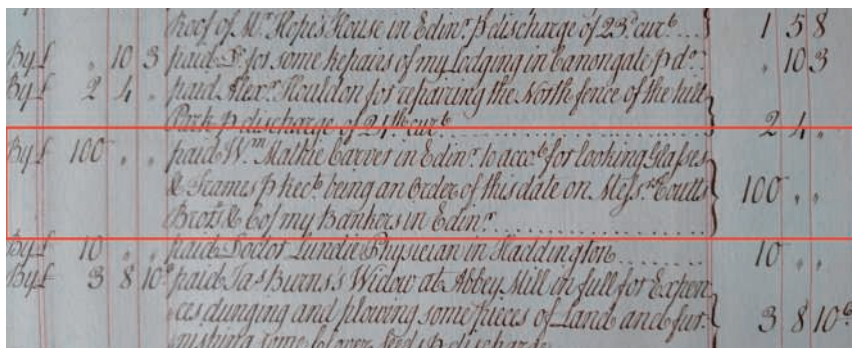 Roof of Mr. Hope's House in Edinr. p discharge of 23d. curt. 1 5 8
By £ " 10 3 paid Do. for some Repairs of my Lodging in Canongate p do. " 10 3
By £ 2 4 " paid Alexr. Mouldon for repairing the North fence of the hill
Park p discharge of 24th. curt. 2 4 "
By £ 100 " " paid Wm. Mathie Carver in Edinr. to acct. for looking Glasses
& Frames p Rect. being an Order of this date on Messrs. Coutts 100 " "
Brors. & Co of my Bankers in Edinr.
By £ 10 " " paid Doctor Lundie Physician in Haddington 10 " "
By £ 3 8 10 paid Jas Burns's Widow at Abbey Mill in full for Expen
ces dunging and plowing some pieces of Land and fur 3 8 10
nishing some Clover seeds p discharge